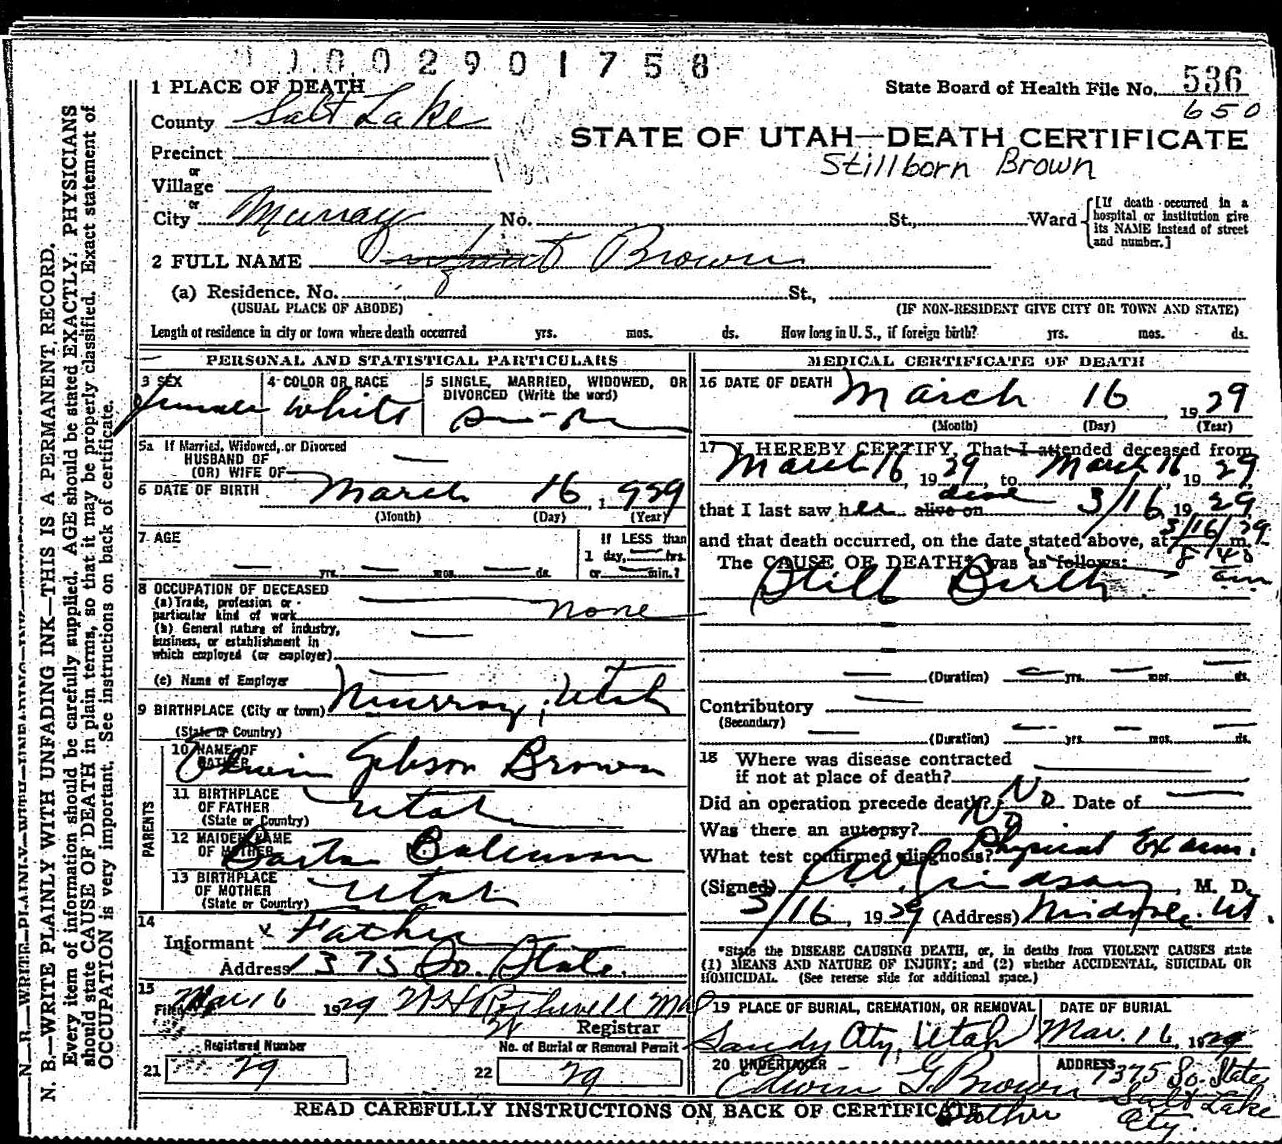 1002901758
1 PLACE OF DEATH
State Board of Health File No. 536
650
County Salt Lake
STATE OF UTAH—DEATH CERTIFICATE
Precinct
Stillborn Brown
or
Village
or
City Murray No. St., Ward
[If death occurred in a hospital or institution give its NAME instead of street and number.]
2 FULL NAME Infant Brown
(a) Residence. No. St.,
(USUAL PLACE OF ABODE) (IF NON-RESIDENT GIVE CITY OR TOWN AND STATE)
Length of residence in city or town where death occurred yrs. mos. ds. How long in U. S., if foreign birth? yrs. mos. ds.
PERSONAL AND STATISTICAL PARTICULARS
3 SEX female
4 COLOR OR RACE White
5 SINGLE, MARRIED, WIDOWED, OR DIVORCED (Write the word)
5a If Married, Widowed, or Divorced
HUSBAND OF
(OR) WIFE OF
6 DATE OF BIRTH March 16, 1929
(Month) (Day) (Year)
7 AGE
yrs. mos. ds.
If LESS than
1 day, hrs.
or min.?
8 OCCUPATION OF DECEASED
(a) Trade, profession or
particular kind of work none
(b) General nature of industry,
business, or establishment in
which employed (or employer)
(c) Name of Employer
9 BIRTHPLACE (City or town) Murray, Utah
(State or Country)
PARENTS
10 NAME OF FATHER Edwin Gibson Brown
11 BIRTHPLACE
OF FATHER Utah
(State or Country)
12 MAIDEN NAME
OF MOTHER
13 BIRTHPLACE
OF MOTHER Utah
(State or Country)
14
Informant Father
Address 1375 So. State
15
Filed Mar 16 1929
Registrar
Registered Number
21 79
No. of Burial or Removal Permit
22 79
MEDICAL CERTIFICATE OF DEATH
16 DATE OF DEATH March 16 1929
(Month) (Day) (Year)
17 I HEREBY CERTIFY, That I attended deceased from
March 16, 1929, to March 16, 1929
that I last saw her alive on dead 3/16, 1929
and that death occurred, on the date stated above, at 3/16/29 m.
8 40 am
The CAUSE OF DEATH* was as follows:
Still Birth
(Duration) yrs. mos. ds.
Contributory
(Secondary)
(Duration) yrs. mos. ds.
18 Where was disease contracted
if not at place of death?
Did an operation precede death? No Date of
Was there an autopsy? No
What test confirmed diagnosis? Physical Exam.
(Signed) Lindsay, M. D.
3/16, 1929 (Address) Midvale, Ut.
*State the DISEASE CAUSING DEATH, or, in deaths from VIOLENT CAUSES state
(1) MEANS AND NATURE OF INJURY; and (2) whether ACCIDENTAL, SUICIDAL OR
HOMICIDAL. (See reverse side for additional space.)
19 PLACE OF BURIAL, CREMATION, OR REMOVAL DATE OF BURIAL
Sandy City, Utah Mar. 16, 1929
20 UNDERTAKER ADDRESS
Edwin G. Brown 1375 So. State
Father Salt Lake
City.
READ CAREFULLY INSTRUCTIONS ON BACK OF CERTIFICATE
N. B.—WRITE PLAINLY WITH UNFADING INK—THIS IS A PERMANENT RECORD.
Every item of information should be carefully supplied. AGE should be stated EXACTLY. PHYSICIANS
should state CAUSE OF DEATH in plain terms, so that it may be properly classified. Exact statement of
OCCUPATION is very important. See instructions on back of certificate.